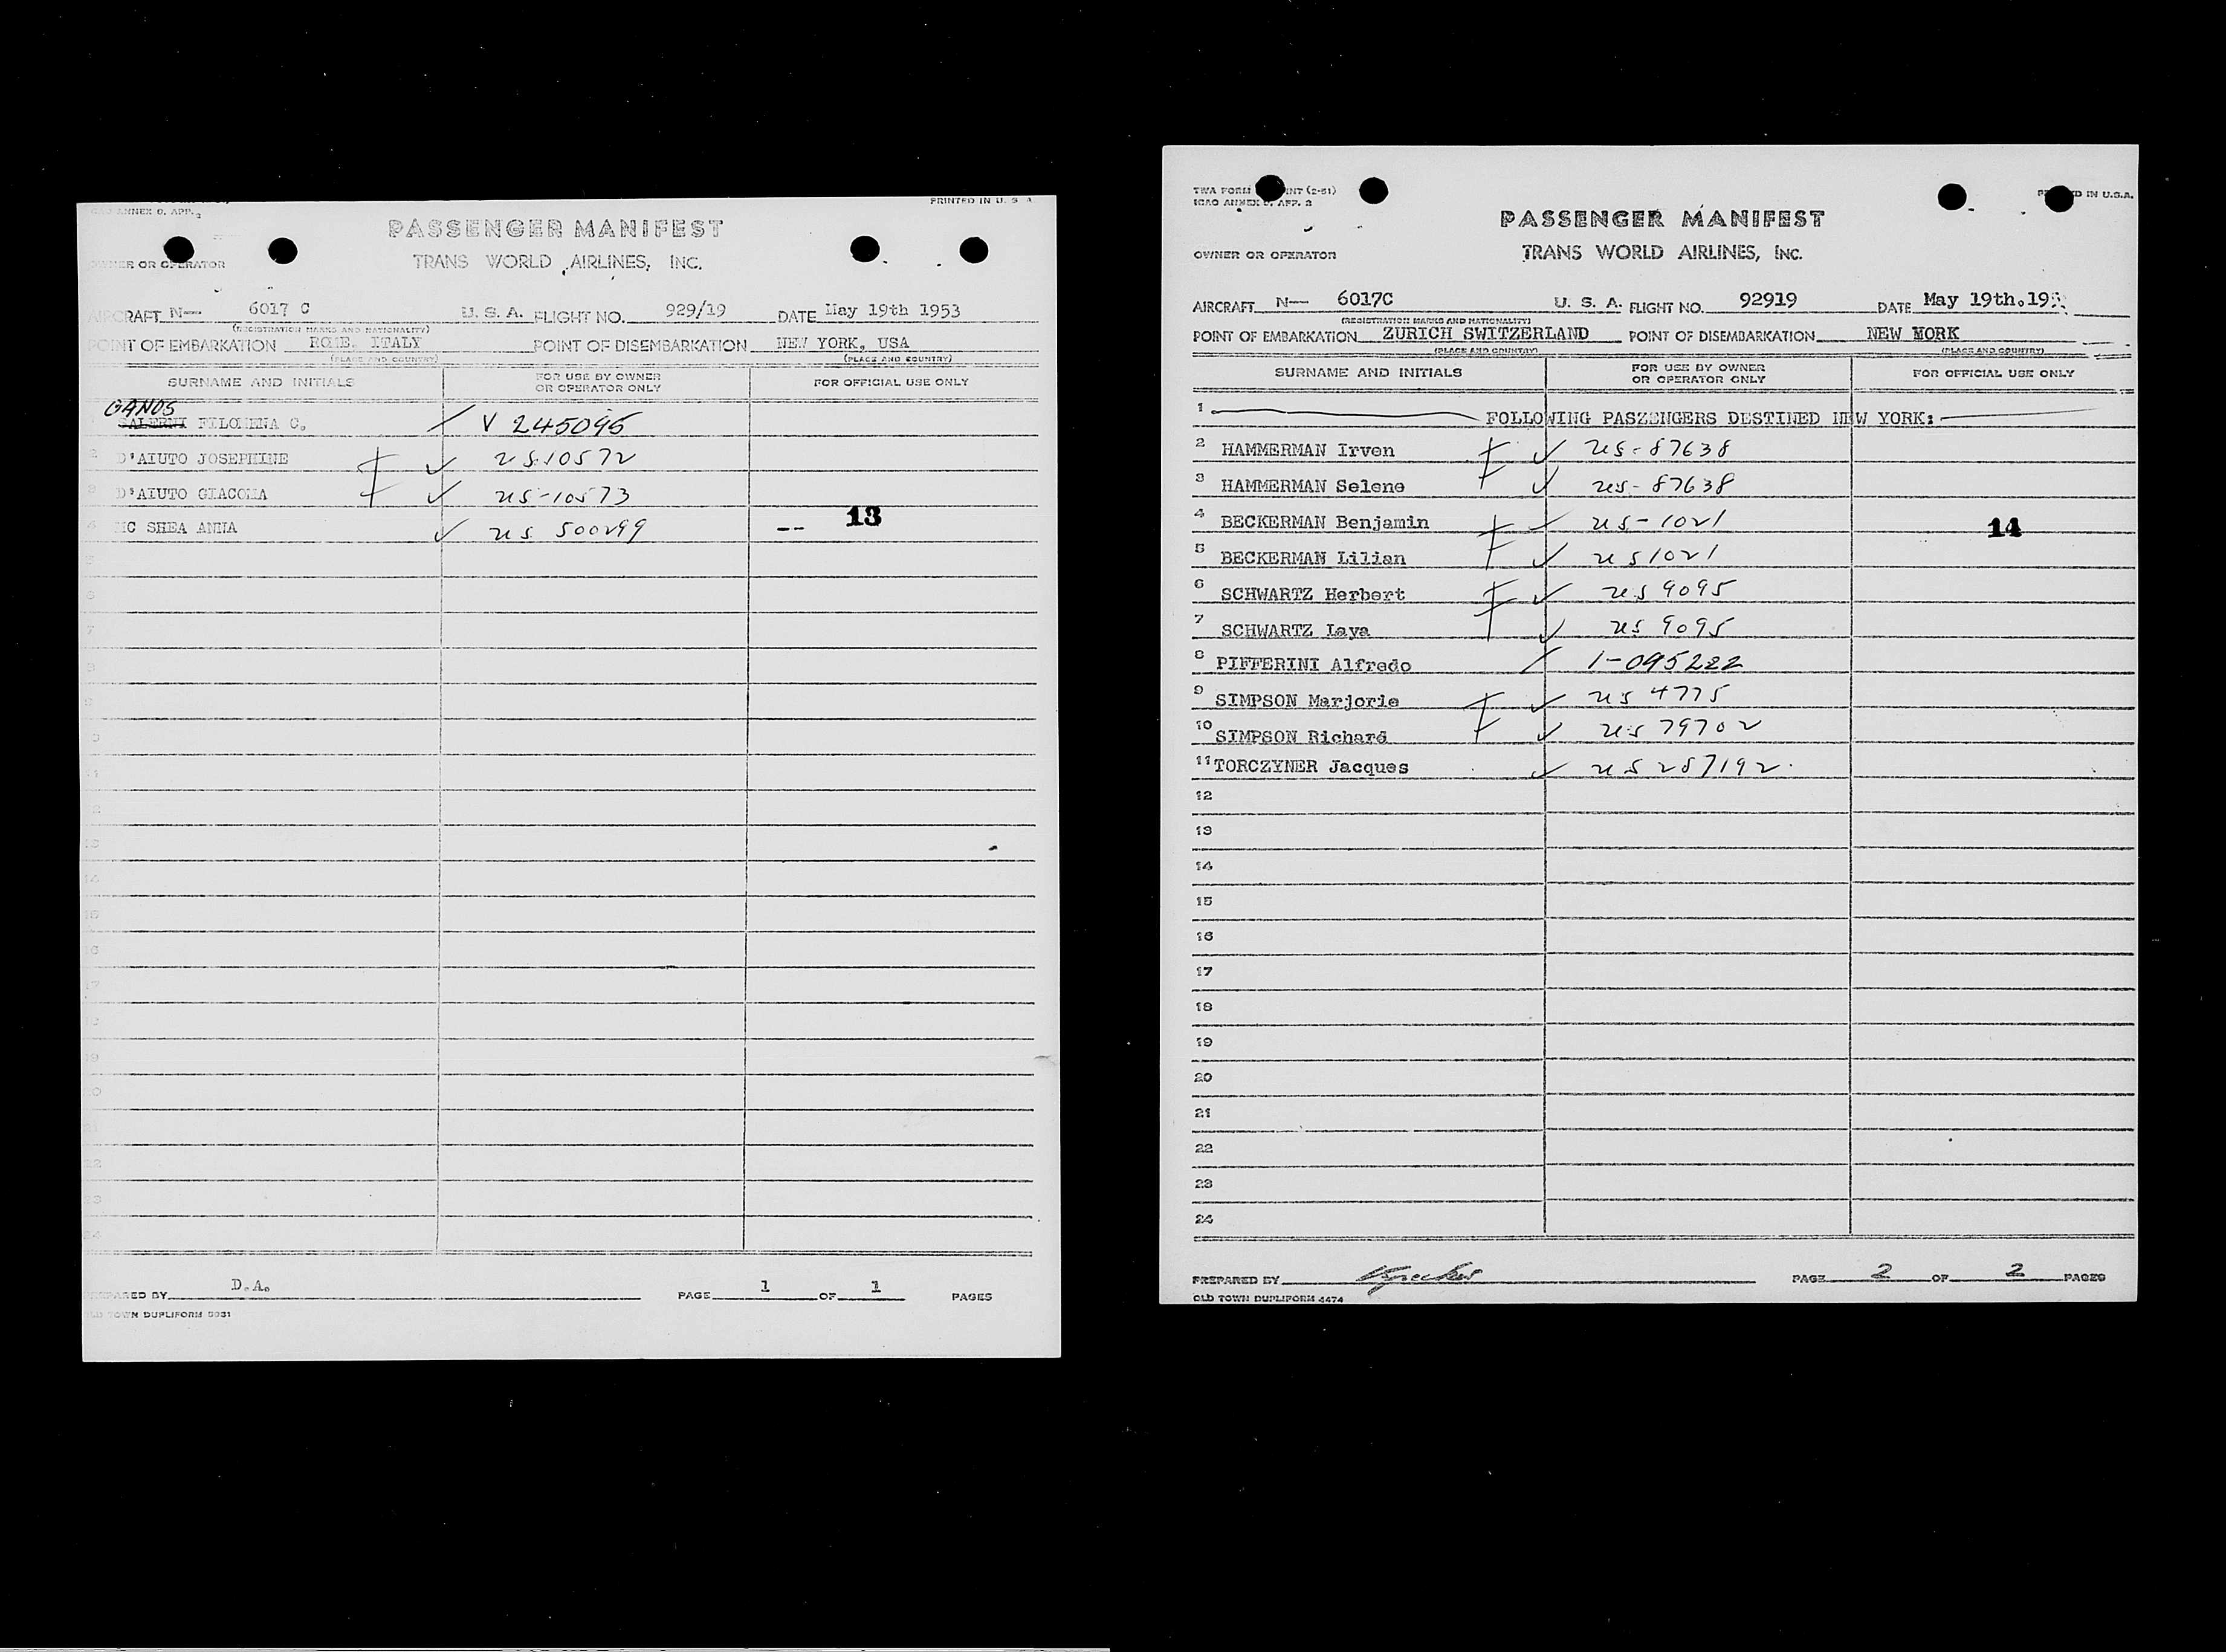 ICAO ANNEX 9, APP. 2
PRINTED IN U. S. A.
PASSENGER MANIFEST
OWNER OR OPERATOR TRANS WORLD AIRLINES, INC.
AIRCRAFT N— 6017 C U. S. A. FLIGHT NO. 929/19 DATE May 19th 1953
(REGISTRATION MARKS AND NATIONALITY)
POINT OF EMBARKATION ROME, ITALY POINT OF DISEMBARKATION NEW YORK, USA
(PLACE AND COUNTRY) (PLACE AND COUNTRY)
SURNAME AND INITIALS FOR USE BY OWNER OR OPERATOR ONLY FOR OFFICIAL USE ONLY
GANOS
1 SALERNI FILOMENA C. V 245095
2 D'AIUTO JOSEPHINE us 10572
3 D'AIUTO GIACOMA us-10573
4 MC SHEA ANNA us 500299 -- 13
5
6
7
8
9
10
11
12
13
14
15
16
17
18
19
20
21
22
23
24
PREPARED BY D.A. PAGE 1 OF 1 PAGES
OLD TOWN DUPLIFORM 5031
TWA FORM INT (2-51)
ICAO ANNEX 9, APP. 2
PRINTED IN U.S.A.
PASSENGER MANIFEST
OWNER OR OPERATOR TRANS WORLD AIRLINES, INC.
AIRCRAFT N— 6017C U. S. A. FLIGHT NO. 92919 DATE May 19th.195
(REGISTRATION MARKS AND NATIONALITY)
POINT OF EMBARKATION ZURICH SWITZERLAND POINT OF DISEMBARKATION NEW MORK
(PLACE AND COUNTRY) (PLACE AND COUNTRY)
SURNAME AND INITIALS FOR USE BY OWNER OR OPERATOR ONLY FOR OFFICIAL USE ONLY
1 FOLLOWING PASZENGERS DESTINED NEW YORK:
2 HAMMERMAN Irven us-87638
3 HAMMERMAN Selene us-87638
4 BECKERMAN Benjamin us-1021 14
5 BECKERMAN Lilian us 1021
6 SCHWARTZ Herbert us 9095
7 SCHWARTZ Laya us 9095
8 PIFFERINI Alfredo 1-095222
9 SIMPSON Marjorie us 4775
10 SIMPSON Richard us 79702
11 TORCZYNER Jacques us 287192
12
13
14
15
16
17
18
19
20
21
22
23
24
PREPARED BY PAGE 2 OF 2 PAGES
OLD TOWN DUPLIFORM 4474